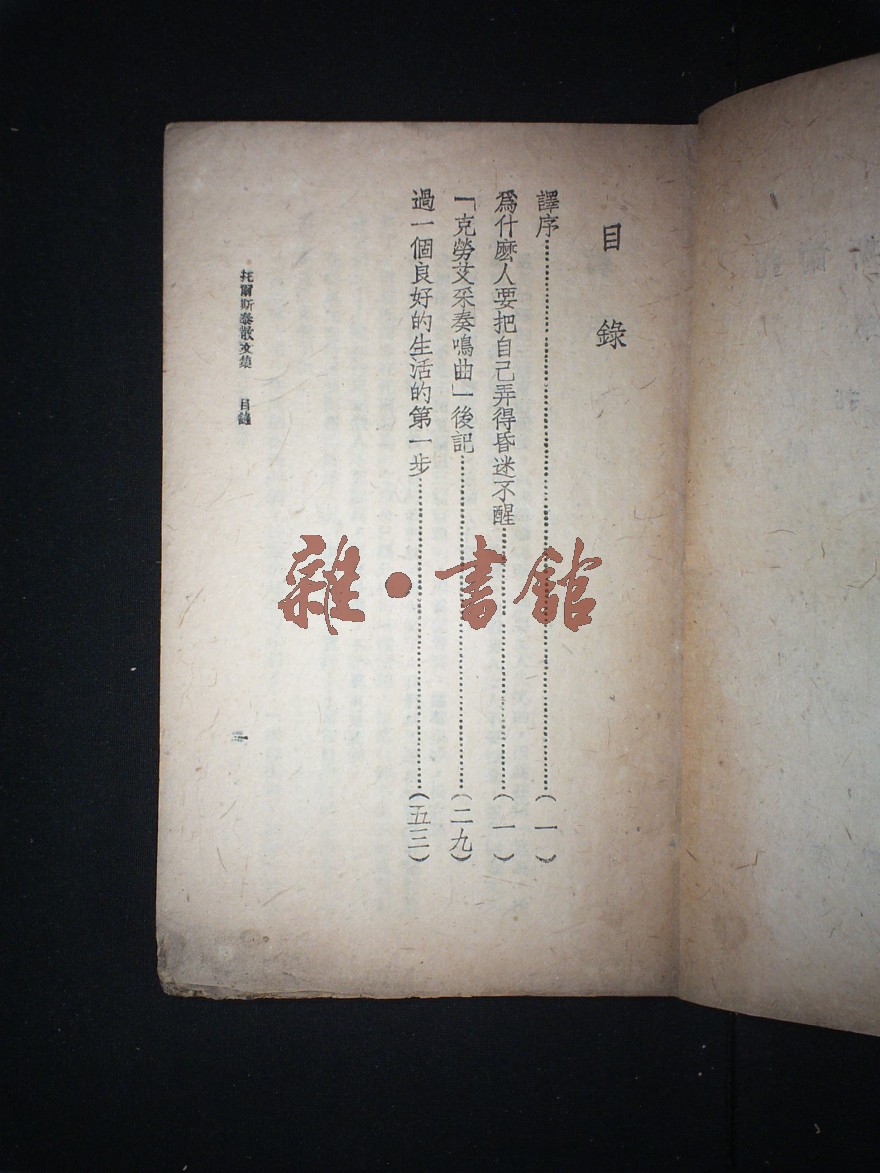 目錄
譯序…………(一)
爲什麽人要把自己弄得昏迷不醒…………(一)
「克勞艾采奏鳴曲」一後記…………(二九)
過一個良好的生活的第一步…………(五三)
托爾斯泰散文集 目錄
雜·書館